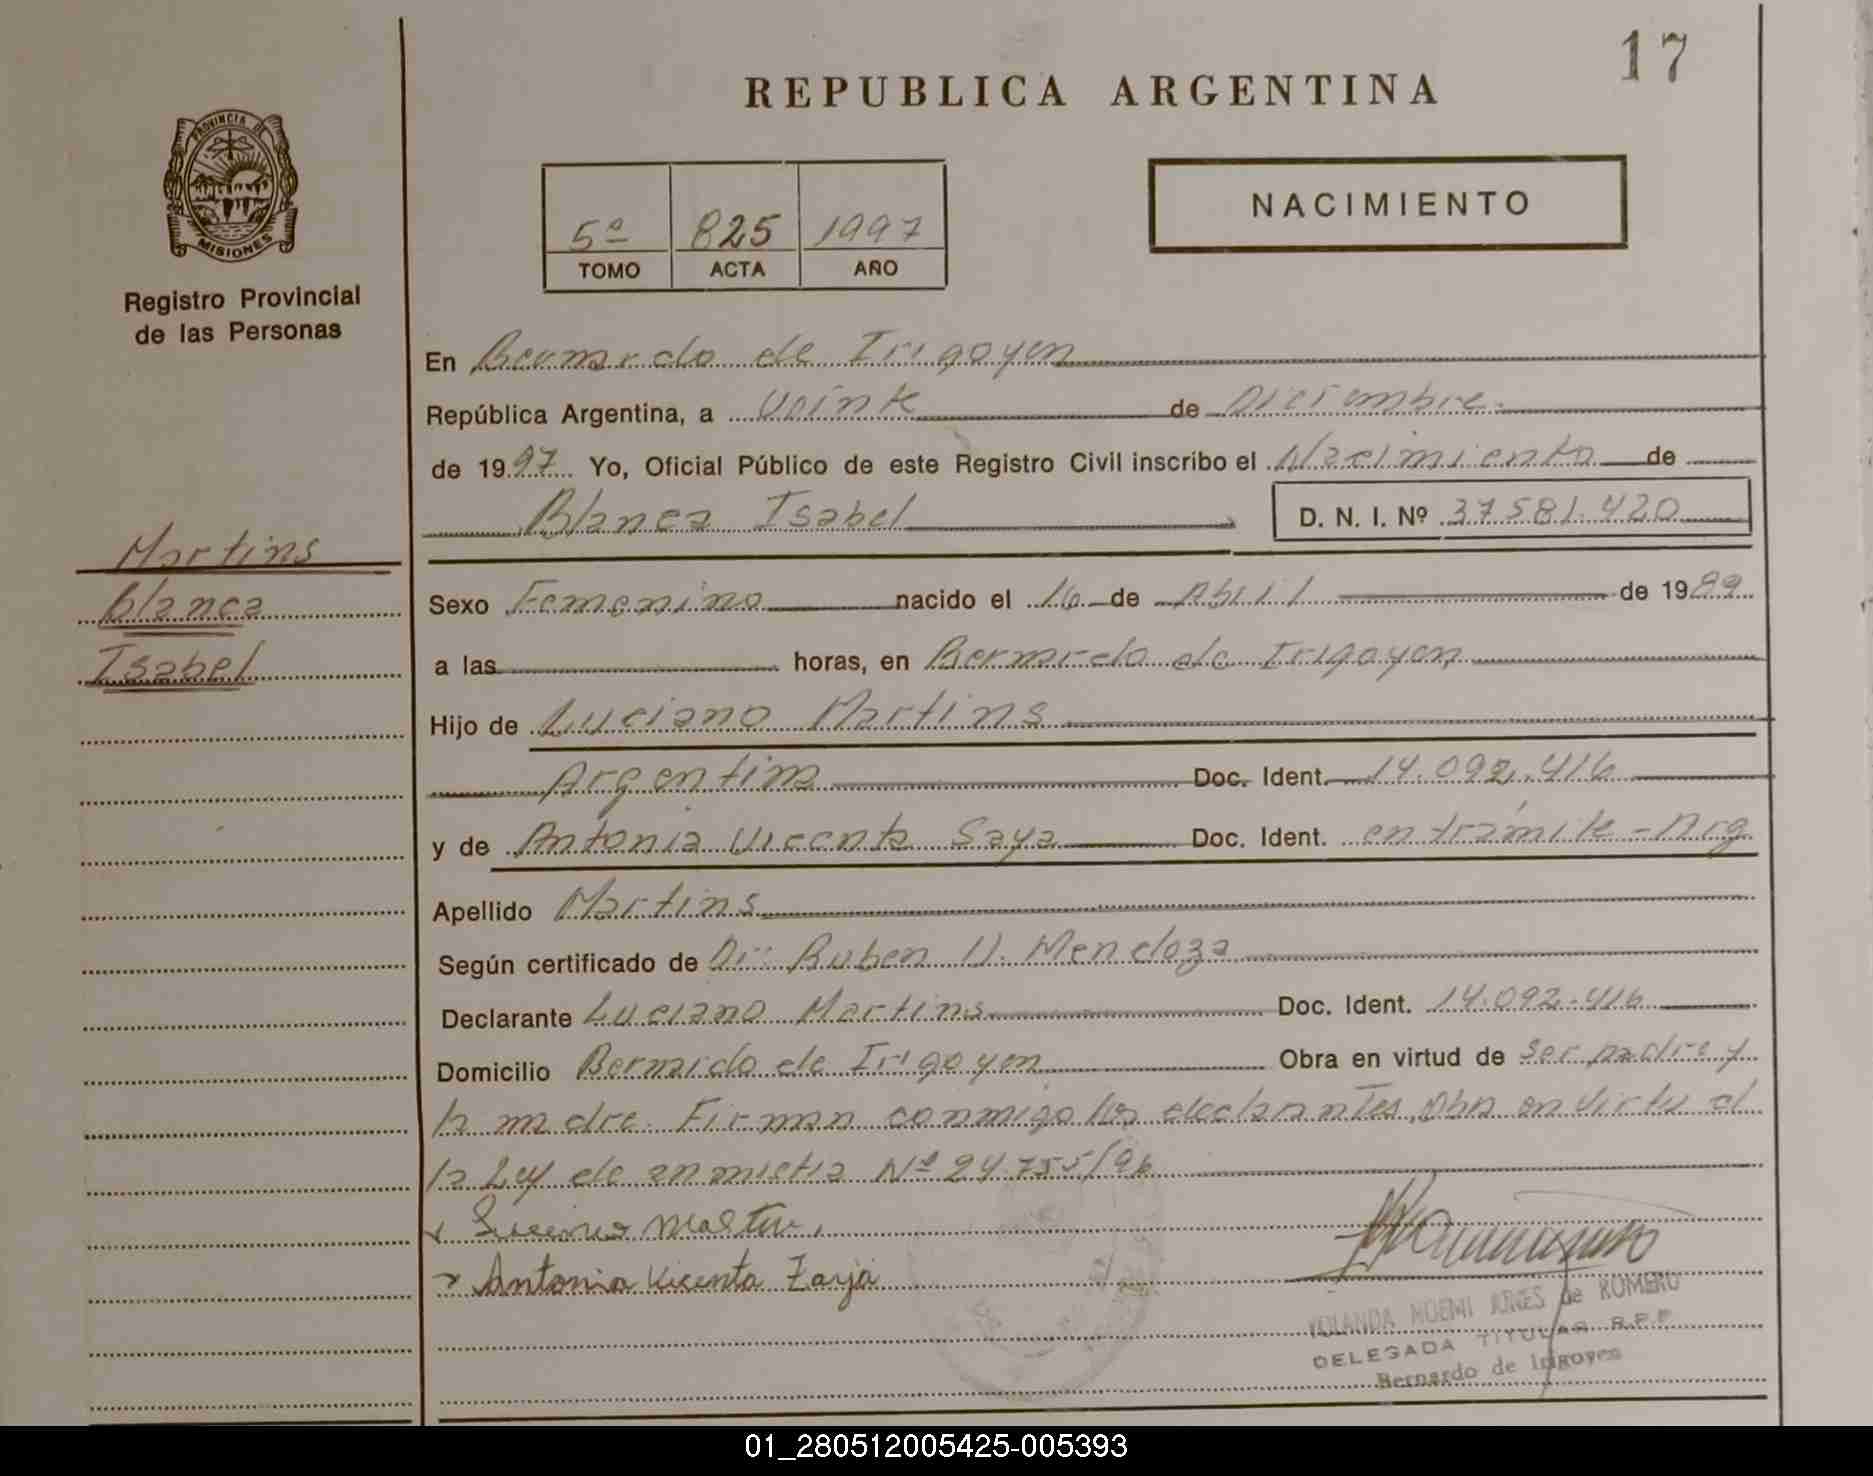 17
REPUBLICA ARGENTINA
PROVINCIA DE
MISIONES
Registro Provincial
de las Personas
5º 825 1997
TOMO ACTA AÑO
NACIMIENTO
En Bernardo de Irigoyen
República Argentina, a Veinte de Diciembre
de 1997 Yo, Oficial Público de este Registro Civil inscribo el Nacimiento de
Blanca Isabel D. N. I. Nº 37.581.420
Martins
Blanca
Isabel
Sexo Femenino nacido el 16 de Abril de 1989
a las horas, en Bernardo de Irigoyen
Hijo de Luciano Martins
Argentina Doc. Ident. 14.092.416
y de Antonia Vicenta Saya Doc. Ident. en trámite - Arg
Apellido Martins
Según certificado de Dr. Ruben U. Mendoza
Declarante Luciano Martins Doc. Ident. 14.092.416
Domicilio Bernardo de Irigoyen Obra en virtud de ser padre y
la madre. Firman conmigo los declarantes, Obra en virtud
la Ley de anmistia Nº 24.755/96
Antonia Vicenta Zarja
YOLANDA NOEMI JONES de ROMERO
DELEGADA TITULAR R.P.P.
Bernardo de Irigoyen
01_280512005425-005393